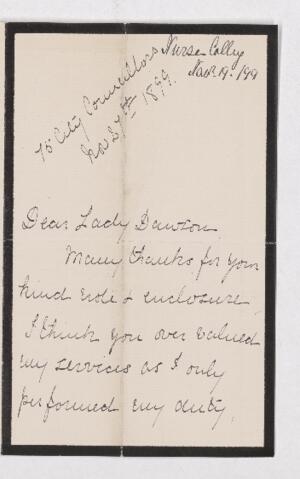 Nurse Colley
Nov. 29. /99
75 City Councillors
Nov 27th 1899.
Dear Lady Dawson
Many thanks for your
kind note & enclosure
I think you over valued
my services as I only
performed my duty.